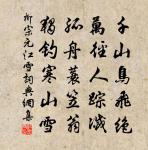 千山鳥飛絕
萬徑人踪滅
孤舟蓑笠翁
獨釣寒山雪
柳宗元江雪詞興綱書